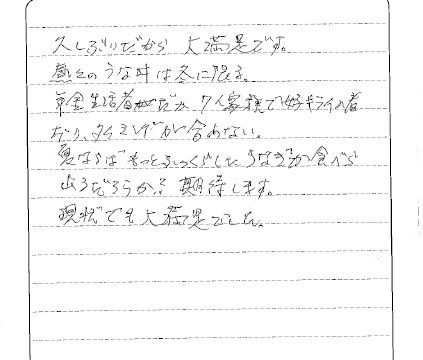 久しぶりだから 大満足です。
うな丼は冬に限る。
年金生活者だが 7人家族で
タイミングが合わない。
夏ならばもっとふっくらしたうなぎが食べら
れるだろうか? 期待します。
現状でも大満足でした。